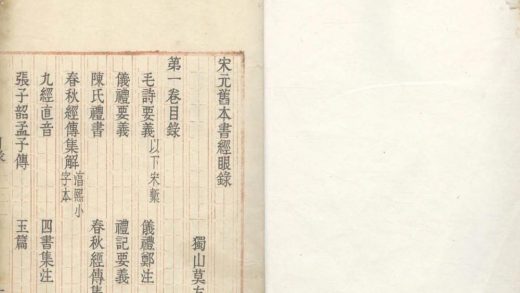 宋元舊本書經眼錄
獨山莫友
第一卷目錄
毛詩要義以下宋槧
儀禮鄭注
儀禮要義
禮記要義
陳氏禮書
春秋經傳集
春秋經傳集解淳熙小字本
九經直音
四書集注
張子韶孟子傳
玉篇